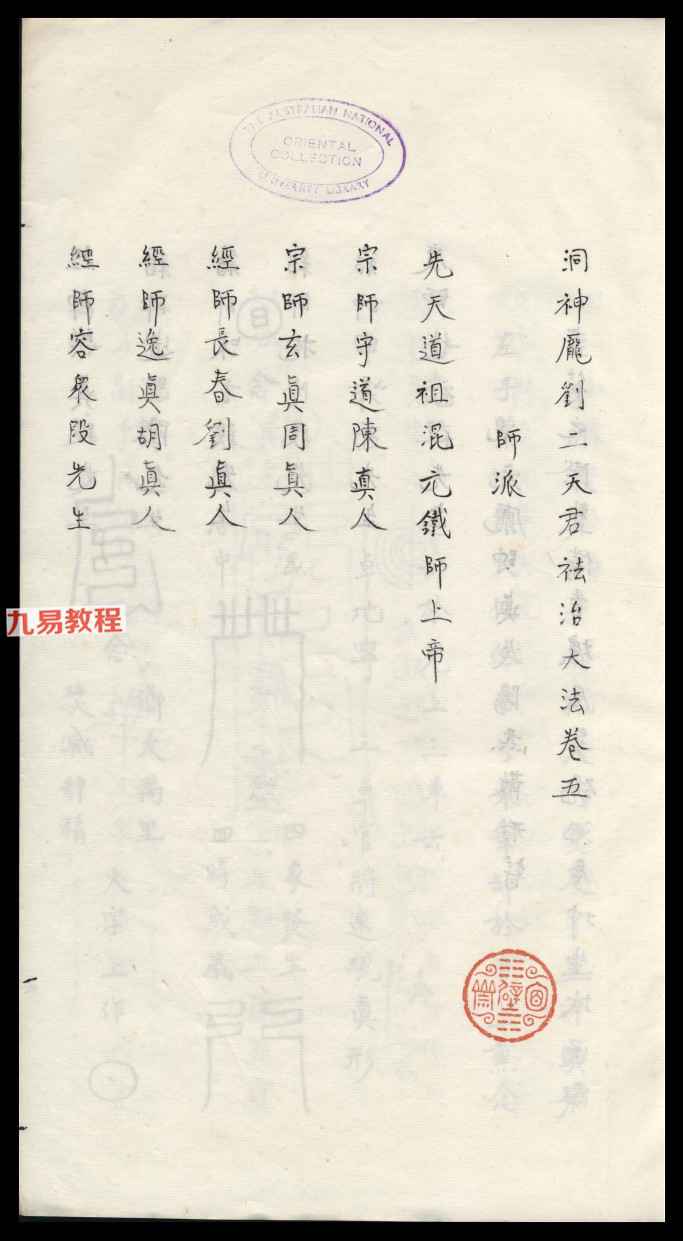 THE AUSTRALIAN NATIONAL
ORIENTAL
COLLECTION
UNIVERSITY LIBRARY
洞神龐劉二天君祛治大法卷五
師派
先天道祖混元鐵師上帝
宗師守道陳真人
宗師玄真周真人
經師長春劉真人
經師逸真胡真人
經師容泉段先生
九易教程